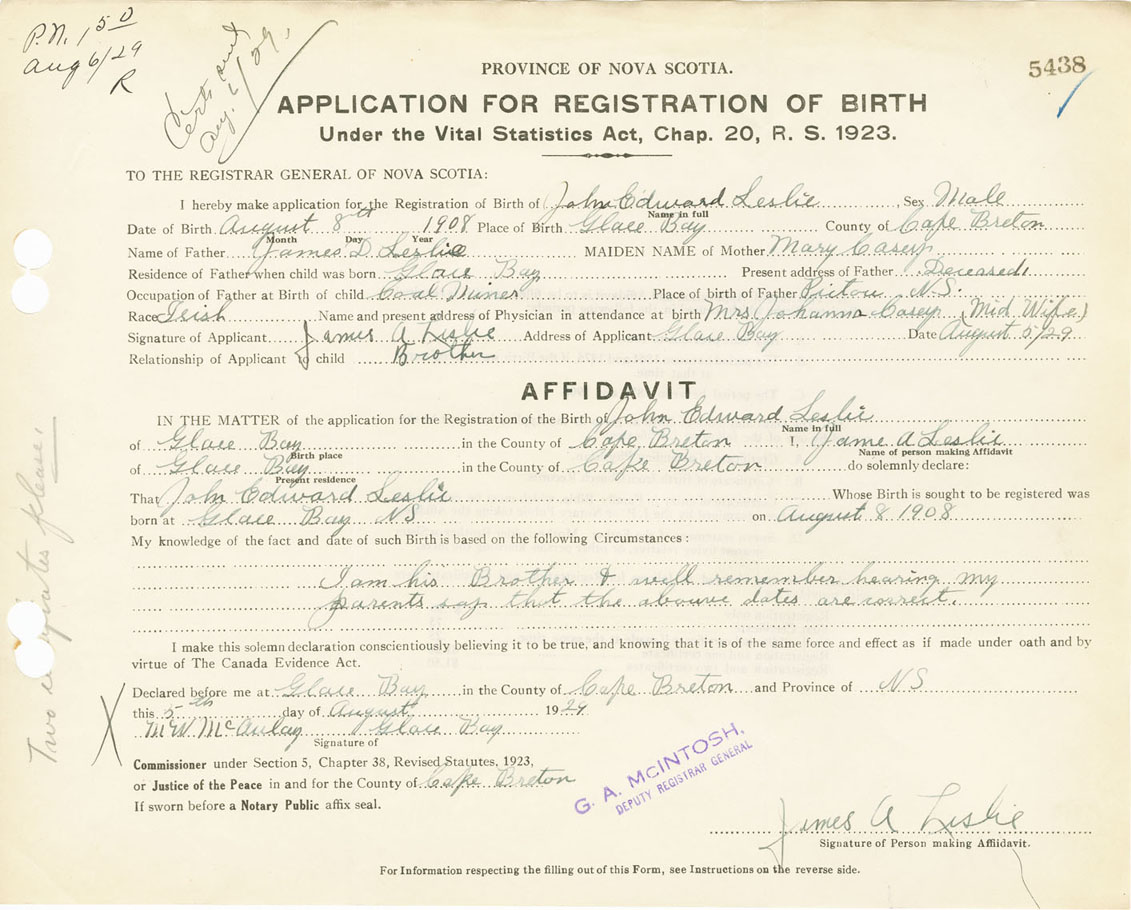 P.N. 1 50
Aug 6/29
R
Certs sent
Aug. 6/29.
5438
PROVINCE OF NOVA SCOTIA.
APPLICATION FOR REGISTRATION OF BIRTH
Under the Vital Statistics Act, Chap. 20, R. S. 1923.
TO THE REGISTRAR GENERAL OF NOVA SCOTIA:
I hereby make application for the Registration of Birth of John Edward Leslie Sex Male
Name in full
Date of Birth August 8th 1908 Place of Birth Glace Bay County of Cape Breton
Month Day Year
Name of Father James D Leslie MAIDEN NAME of Mother Mary Casey
Residence of Father when child was born Glace Bay Present address of Father Deceased
Occupation of Father at Birth of child Coal Miner Place of birth of Father Pictou N.S.
Race Irish Name and present address of Physician in attendance at birth Mrs Johanna Casey (Mid Wife)
Signature of Applicant James A Leslie Address of Applicant Glace Bay Date August 5/29
Relationship of Applicant to child Brother
AFFIDAVIT
IN THE MATTER of the application for the Registration of the Birth of John Edward Leslie
Name in full
of Glace Bay in the County of Cape Breton I, Jame A Leslie
Birth place Name of person making Affidavit
of Glace Bay in the County of Cape Breton do solemnly declare:
Present residence
That John Edward Leslie Whose Birth is sought to be registered was
born at Glace Bay NS on August 8 1908
My knowledge of the fact and date of such Birth is based on the following Circumstances:
I am his Brother & well remember hearing my
parents say that the above dates are correct.
I make this solemn declaration conscientiously believing it to be true, and knowing that it is of the same force and effect as if made under oath and by
virtue of The Canada Evidence Act.
Declared before me at Glace Bay in the County of Cape Breton and Province of NS
this 5th day of August 1929
M W McAulay Glace Bay
Signature of
Commissioner under Section 5, Chapter 38, Revised Statutes, 1923,
or Justice of the Peace in and for the County of Cape Breton
If sworn before a Notary Public affix seal.
G. A. McINTOSH,
DEPUTY REGISTRAR GENERAL
James A Leslie
Signature of Person making Affiidavit.
For Information respecting the filling out of this Form, see Instructions on the reverse side.
Two please.